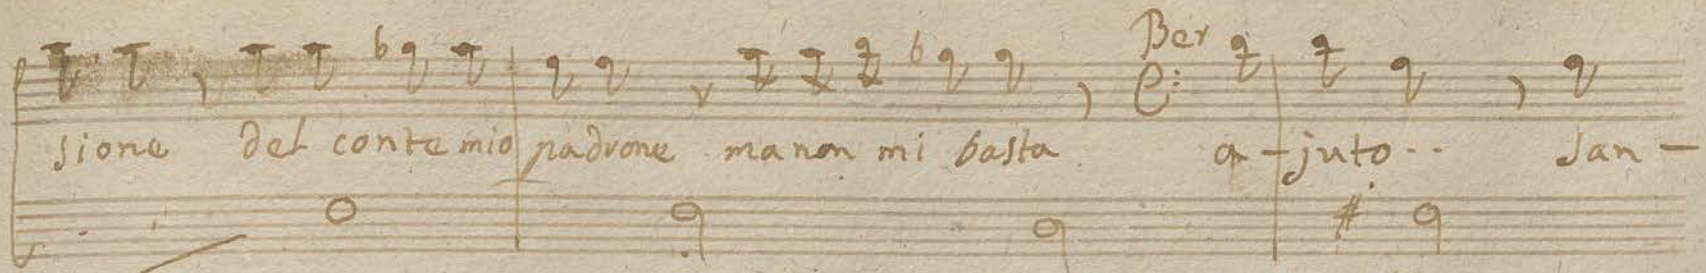 Ber
sione del conte mio padrone ma non mi basta a-juto.. San-